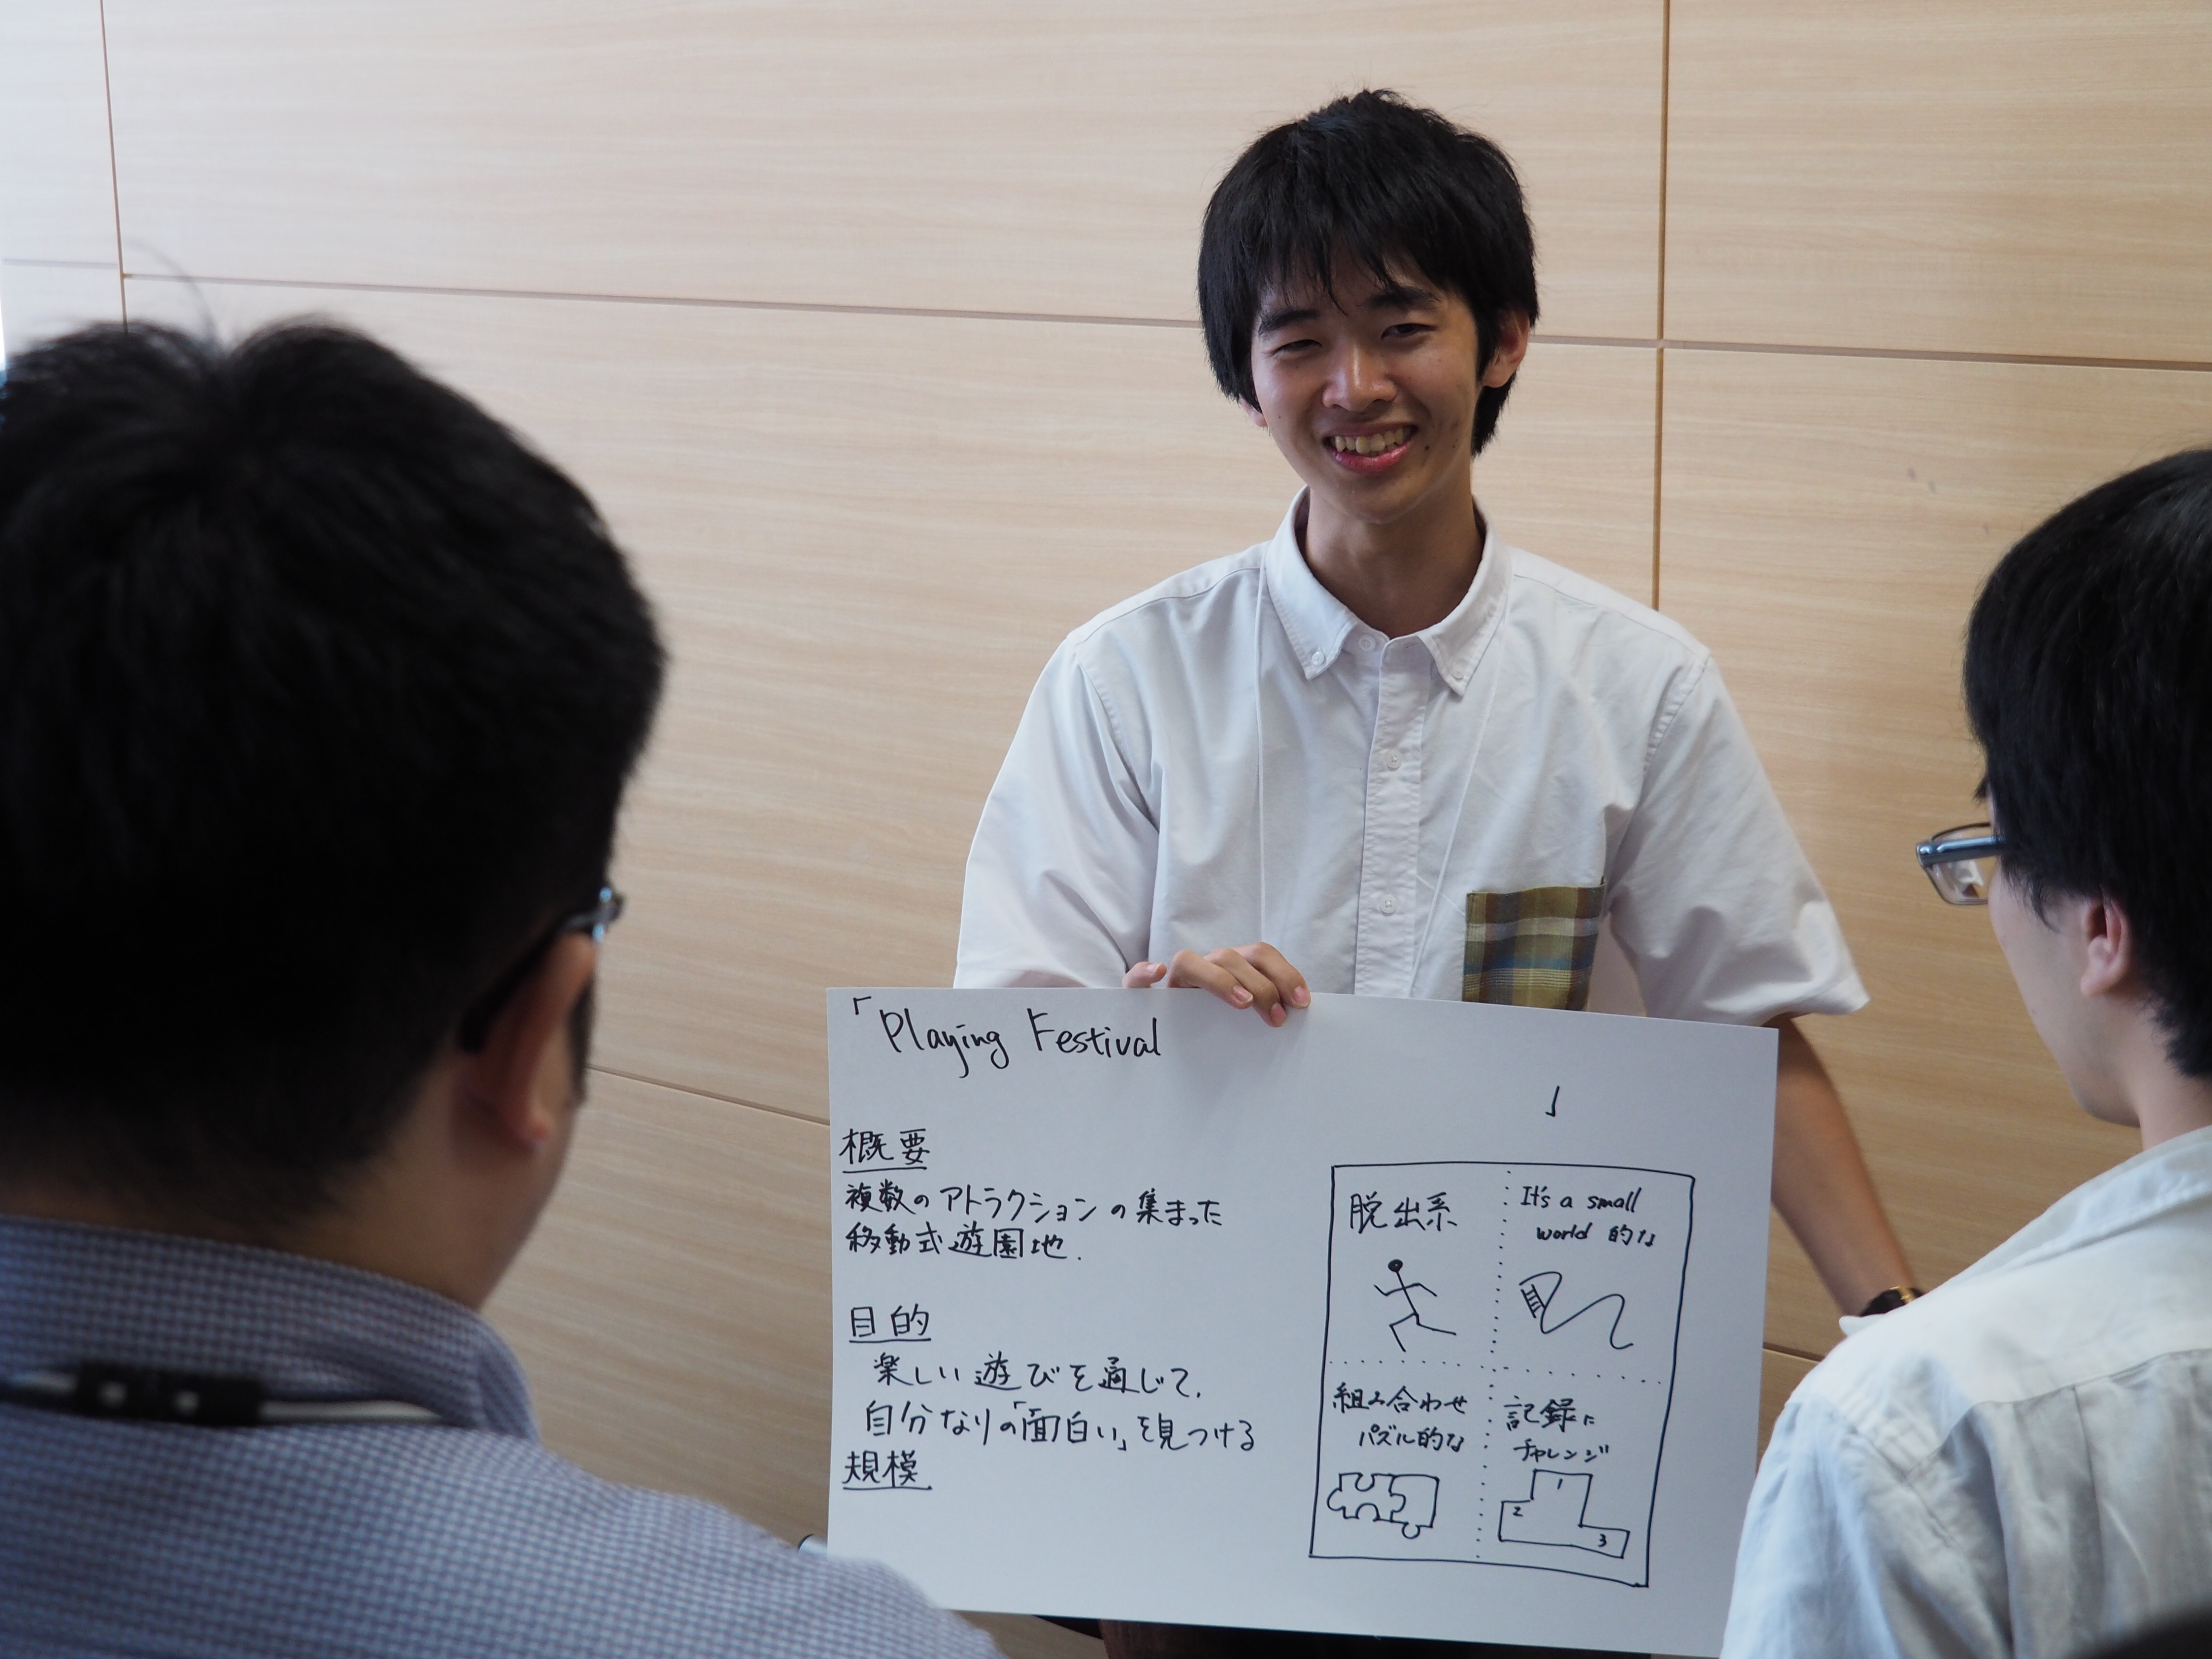 「Playing Festival
」
概要
複数のアトラクションの集まった
移動式遊園地.
目的
楽しい遊びを通じて,
自分なりの「面白い」を見つける
規模
脱出系
It's a small
world 的な
組み合わせ
パズル的な
記録に
チャレンジ
1
2
3